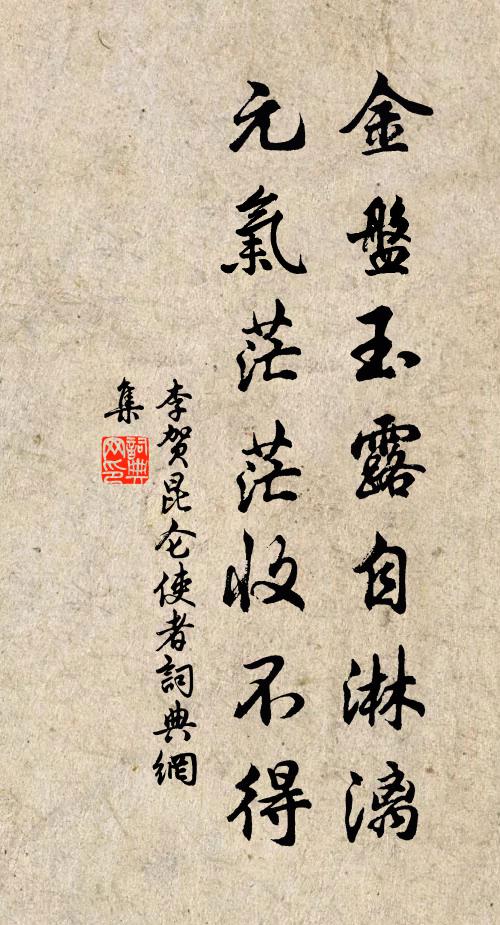 金盤玉露自淋漓
元氣茫茫收不得
李賀昆仑使者詞典網
集
詞典
网印